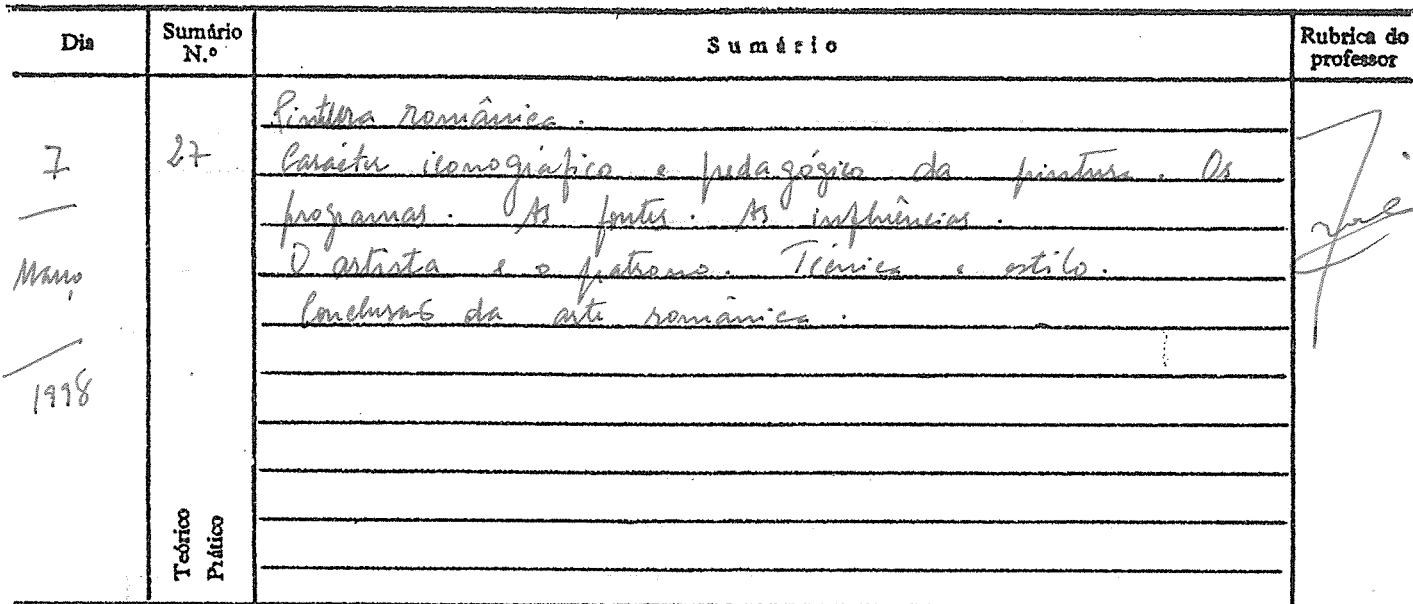 Dia
Sumário N.º
Sumário
Rubrica do professor
7
Março
1998
27
Pintura românica.
Carácter iconográfico e pedagógico da pintura. Os
programas. As fontes. As influências.
O artista e o patrono. Técnica e estilo.
Conclusão da arte românica.
Teórico
Prático